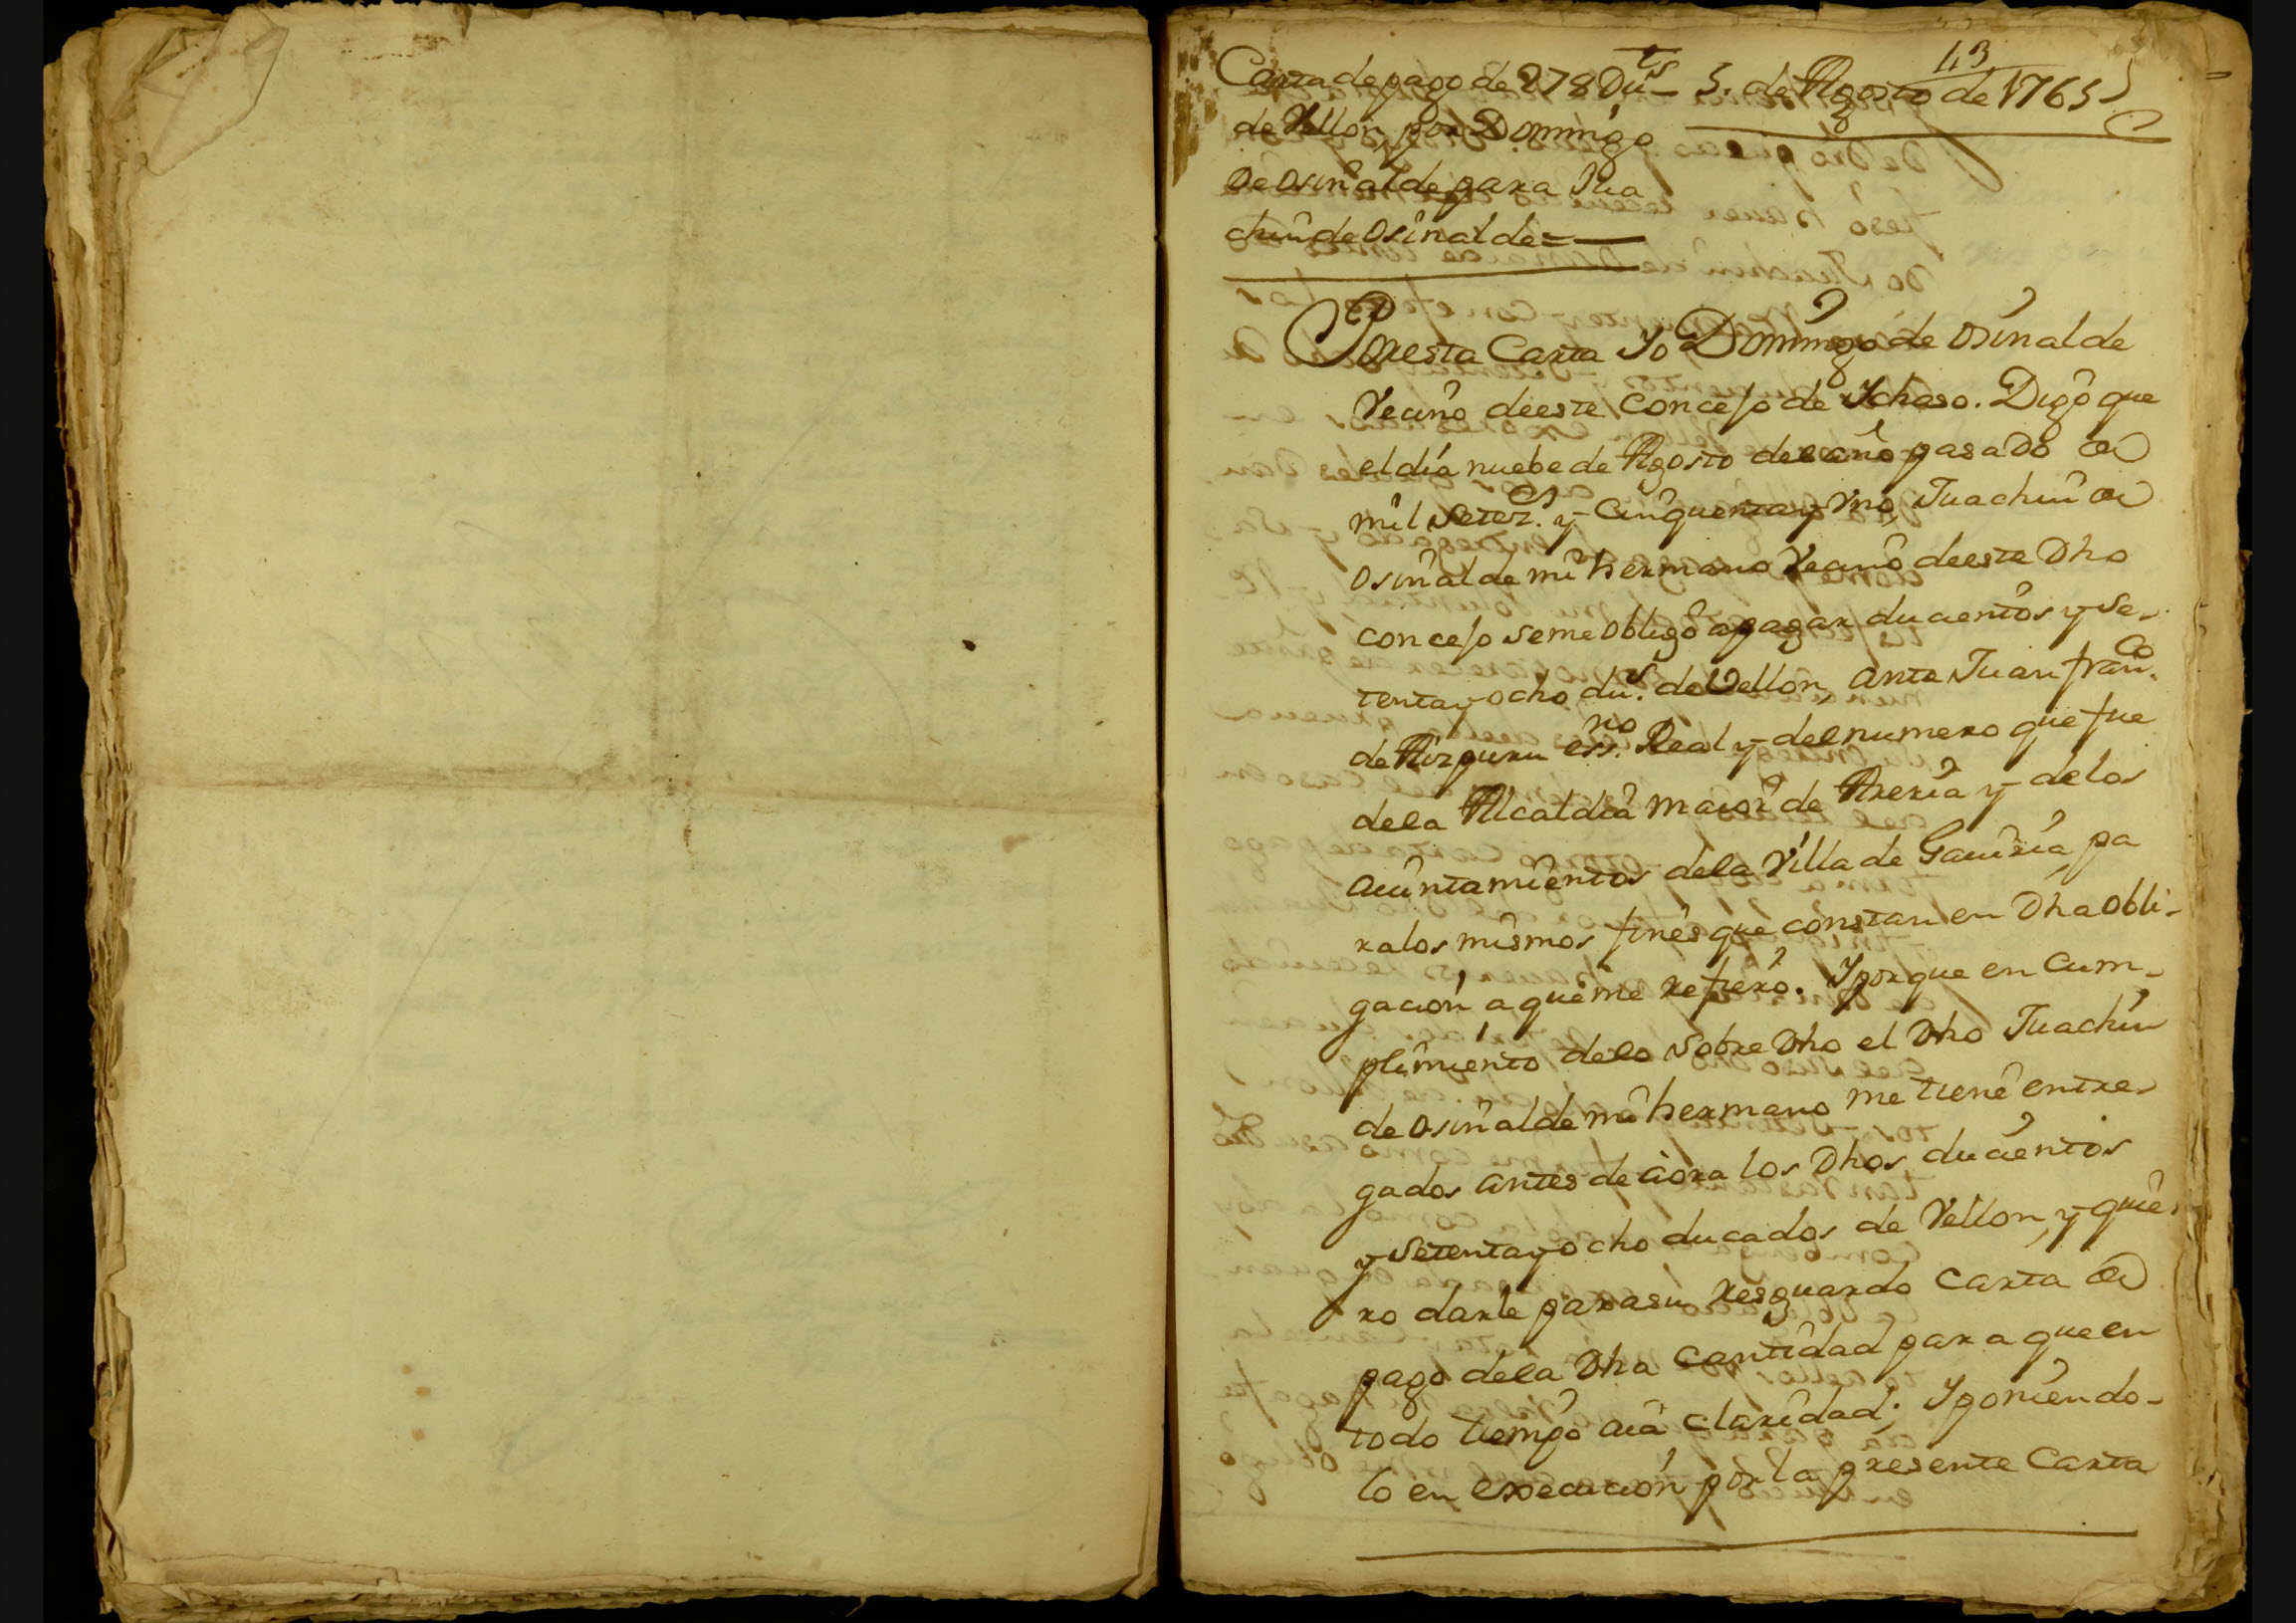 113
Carta de pago de 278 Du^ts
de Vellon, por Domingo
de Osinalde para Jua
chin de Osinalde=
5. de Agosto de 1765
Por esta Carta Yo Domingo de Osinalde
Vecino de este Concejo de Ichaso. Digo que
el día nuebe de Agosto del año pasado de
mil Setez.^s y Cinquenta y Uno, Juachin de
Osinalde mi hermano Vecino de este Dho
concejo se me obligó a pagar ducientos y Se-
tenta y ocho du.^s de Vellon, ante Juan fran.^co
de Aizpuru ess.^no Real y del numero que fue
de la Alcaldia maior de Areria y de los
aiuntamientos de la Villa de Gaviria, pa
ra los mismos fines que constan en Dha obli-
gación a que me refiero. Y porque en Cum-
plimiento de lo Sobre Dho el Dho Juachin
de Osinalde mi hermano me tiene entre-
gados antes de aora los Dhos ducientos
y Setenta y ocho ducados de Vellon, y quie-
ro darle para su resguardo Carta de
pago de la Dha Cantidad para que en
todo tiempo aia claridad; Y poniendo-
lo en execución por la presente Carta